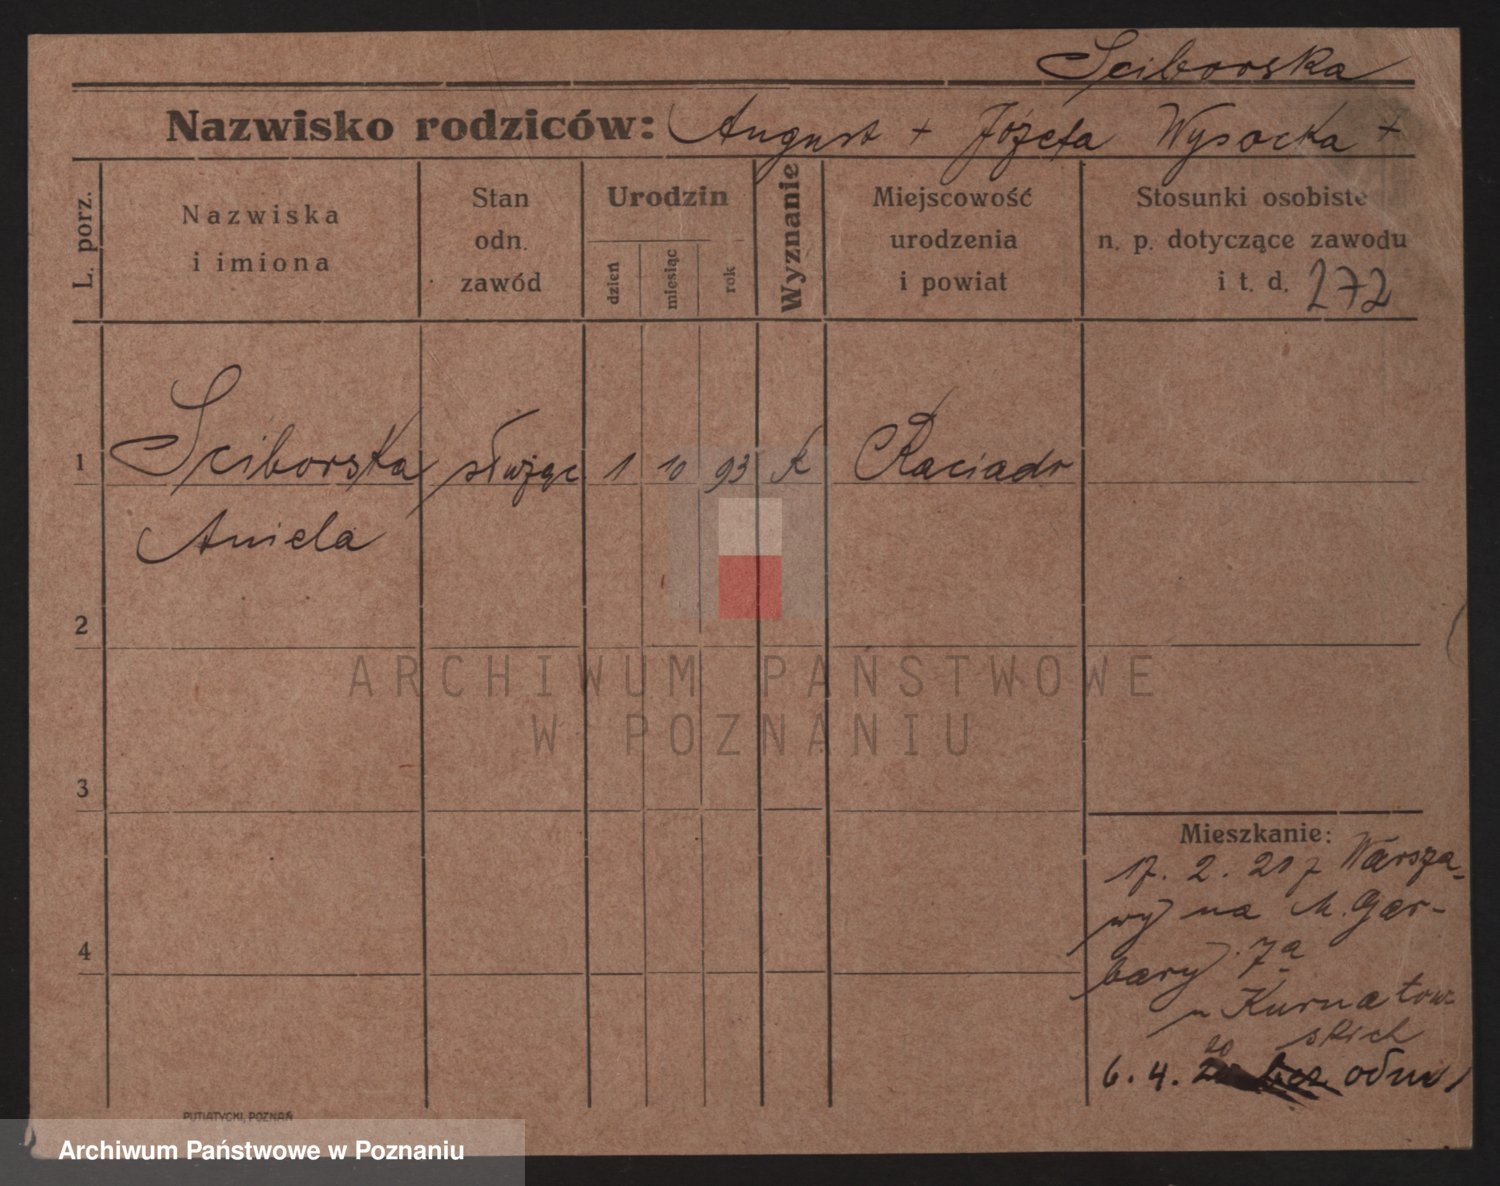 Sciborska
Nazwisko rodziców: August + Józefa Wysocka +
L. porz.
Nazwiska
i imiona
Stan
odn.
zawód
Urodzin
dzień
miesiąc
rok
Wyznanie
Miejscowość
urodzenia
i powiat
Stosunki osobiste
n. p. dotyczące zawodu
i t. d. 272
1 Sciborska służąc 1 10 93 k Raciadr
Aniela
2
3
4
Mieszkanie:
17. 2. 21 z Warsza-
wy na M. Gar-
bary 7a
u Kurnatow-
skich
20
6. 4. bez odm
PUTIATYCKI, POZNAŃ
ARCHIWUM PAŃSTWOWE
W POZNANIU
Archiwum Państwowe w Poznaniu